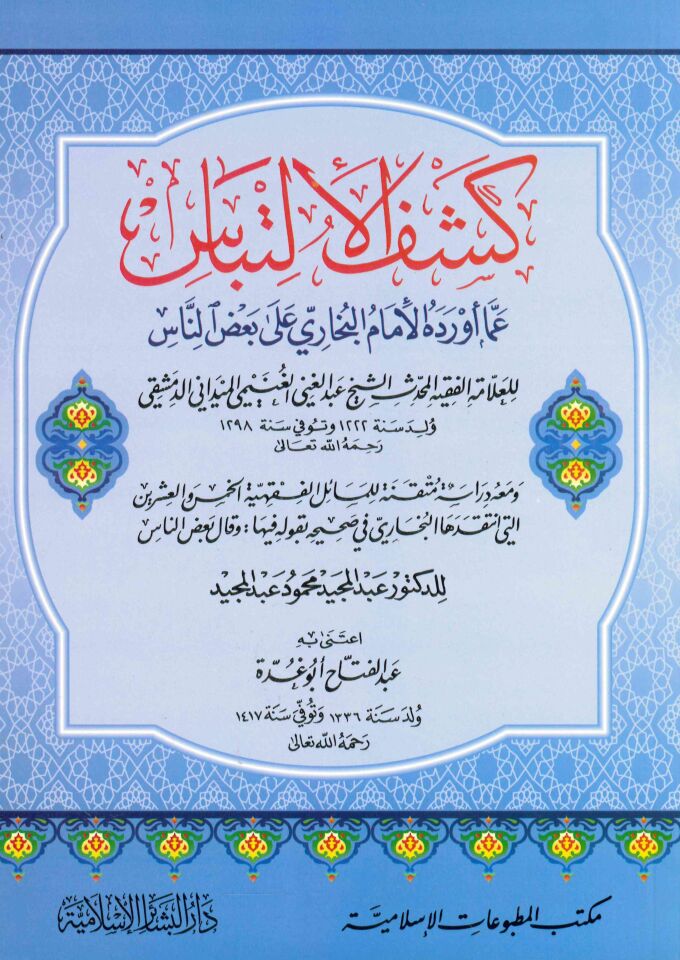 كشف الالتباس
عما أورده الإمام البخاري على بعض الناس
للعلامة الفقيه المحدث الشيخ عبد الغني الغنيمي الميداني الدمشقي
ولد سنة ١٢٢٢ وتوفي سنة ١٢٩٨
رحمه الله تعالى
ومعه دراسة متقنة للمسائل الفقهية الخمس والعشرين
التي انتقدها البخاري في صحيحه بقوله فيها: وقال بعض الناس
للدكتور عبد المجيد محمود عبد المجيد
اعتنى به
عبد الفتاح أبو غدة
ولد سنة ١٣٣٦ وتوفي سنة ١٤١٧
رحمه الله تعالى
مكتب المطبوعات الإسلامية
دار البشائر الإسلامية